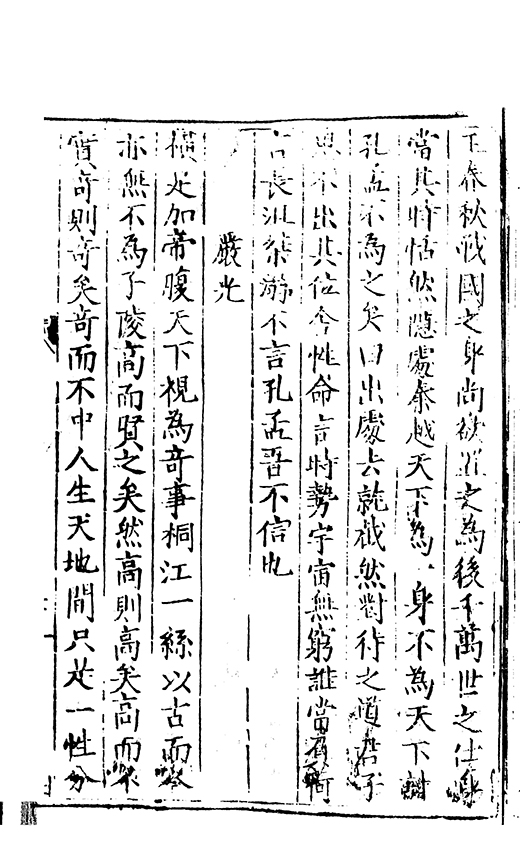 王春秋戰國之身尚欲罪之為後千萬世之仕
當其時恬然隱處秦越天下為一身不為天下
孔孟不為之矣曰出處去就截然對待之道君子
思不出其位今性命言時勢宇宙無窮誰當
言長沮桀溺不言孔孟吾不信也
嚴光
橫足加帝腹天下視為奇事桐江一絲以古而
亦無不為子陵高而賢之矣然高則高矣高而不
實奇則奇矣奇而不中人生天地間只是一性分